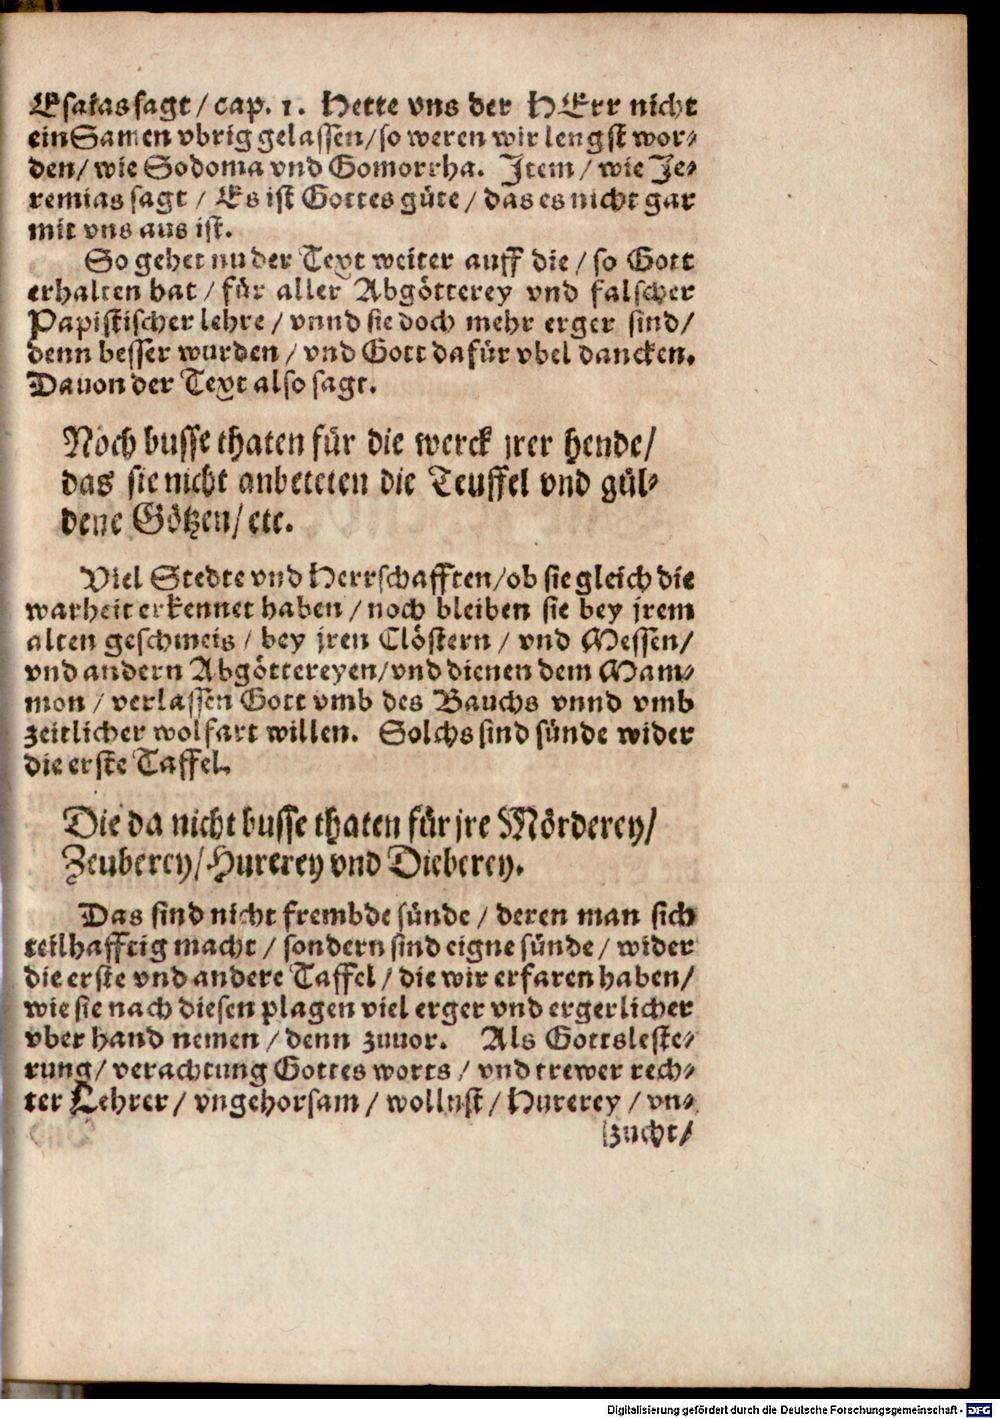 Esaias sagt / cap. 1. Hette vns der HErr nicht
ein Samen vbrig gelassen / so weren wir lengst wor⸗
den / wie Sodoma vnd Gomorrha. Item / wie Je⸗
remias sagt / Es ist Gottes güte / das es nicht gar
mit vns aus ist.
So gehet nu der Text weiter auff die / so Gott
erhalten hat / für aller Abgötterey vnd falscher
Papistischer lehre / vnnd sie doch mehr erger sind /
denn besser wurden / vnd Gott dafür vbel dancken.
Dauon der Text also sagt.
Noch busse thaten für die werck jrer hende /
das sie nicht anbeteten die Teuffel vnd gül⸗
dene Götzen / etc.
Viel Stedte vnd Herrschafften / ob sie gleich die
warheit erkennet haben / noch bleiben sie bey jrem
alten geschmeis / bey jren Clöstern / vnd Messen /
vnd andern Abgöttereyen / vnd dienen dem Mam⸗
mon / verlassen Gott vmb des Bauchs vnnd vmb
zeitlicher wolfart willen. Solchs sind sünde wider
die erste Taffel.
Die da nicht busse thaten für jre Mörderey /
Zeuberey / Hurerey vnd Dieberey.
Das sind nicht frembde sünde / deren man sich
teilhafftig macht / sondern sind eigne sünde / wider
die erste vnd andere Taffel / die wir erfaren haben /
wie sie nach diesen plagen viel erger vnd ergerlicher
vber hand nemen / denn zuuor. Als Gottsleste⸗
rung / verachtung Gottes worts / vnd trewer rech⸗
ter Lehrer / vngehorsam / wollust / Hurerey / vn⸗
zucht /
Digitalisierung gefördert durch die Deutsche Forschungsgemeinschaft - DFG